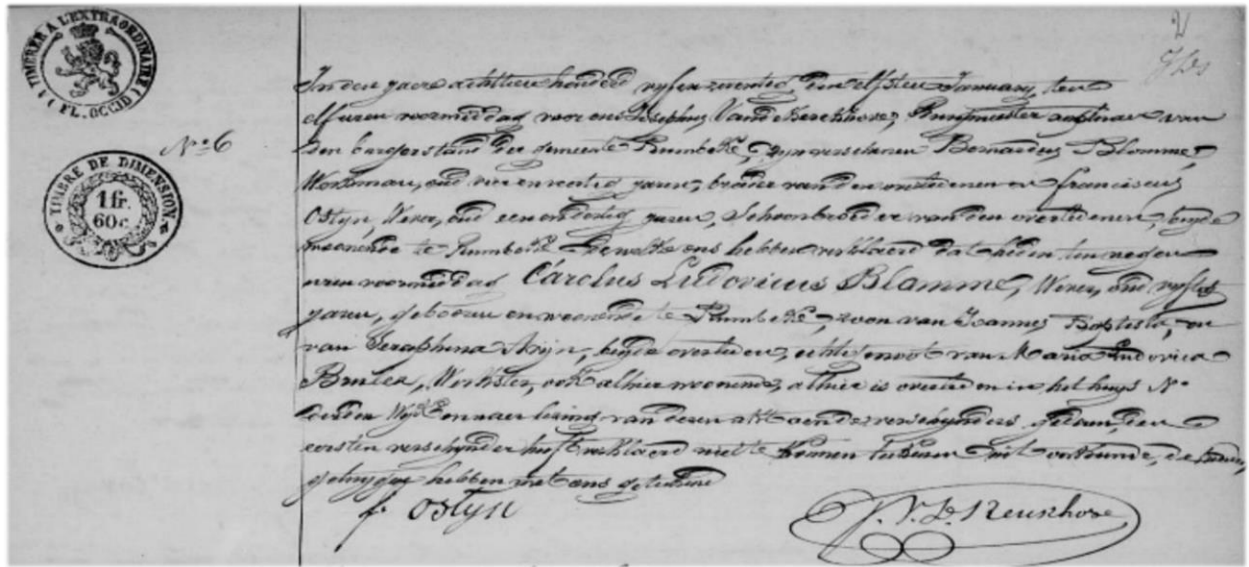 TIMBRER A L'EXTRAORDINAIRE
( FL. OCCID )
2
N° 6
TIMBRE DE DIMENSION.
1 fr.
60 c.
In den jaere achttien honderd vyf en zeventig, den elfsten January, ten
elf uren voormiddag, voor ons Josephus Vanden Berckhove, Burgmeester ambtenaer van
den burgerstand der gemeente Rumbeke, zyn verschenen Bernardus Blomme,
Werkman, oud vier en zestig jaren, broeder van den overledenen en franciscus
Ostyn, Wever, oud een en dertig jaren, Schoonbroeder van den overledenen, beyde
woonende te Rumbeke dewelke ons hebben verklaerd dat heden ten negen
uren voormiddag Carolus Ludovicus Blomme, Wever, oud
jaren, geboren en woonende te Rumbeke, zoon van Joannes Baptiste, en
van Seraphina Stryn, beyde overleden, echtgenoot van Maria Ludovica
Werkster, ook alhier woonende, alhier is overleden in het huys N°
derden Wyk en naer lezing van dezen akt aen de verschynders gedaen, den
eersten verschynder heeft verklaerd niet te konnen teekenen uit onkunde, de
getuyge hebben met ons geteekend
f. Ostyn